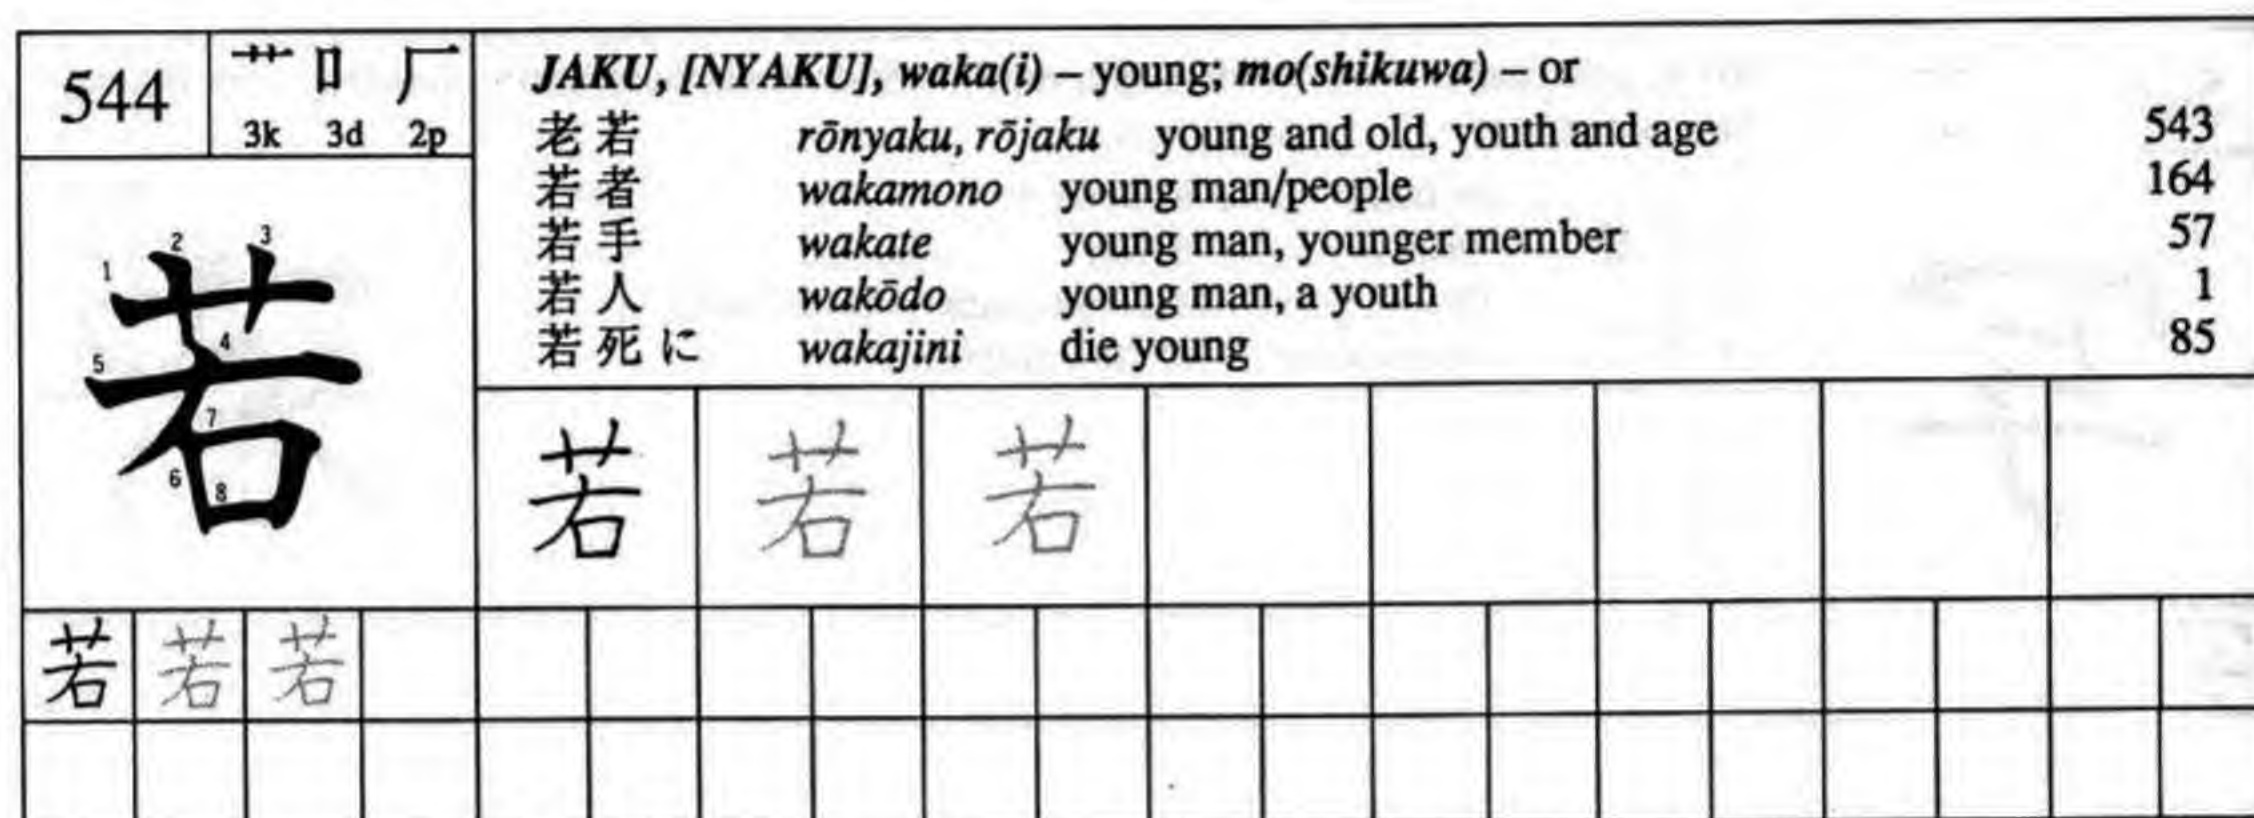 544
艹 口 厂
3k 3d 2p
JAKU, [NYAKU], waka(i) – young; mo(shikuwa) – or
老若 rōnyaku, rōjaku young and old, youth and age 543
若者 wakamono young man/people 164
若手 wakate young man, younger member 57
若人 wakōdo young man, a youth 1
若死に wakajini die young 85
1 2 3 4 5 6 7 8
若
若 若 若
若 若 若